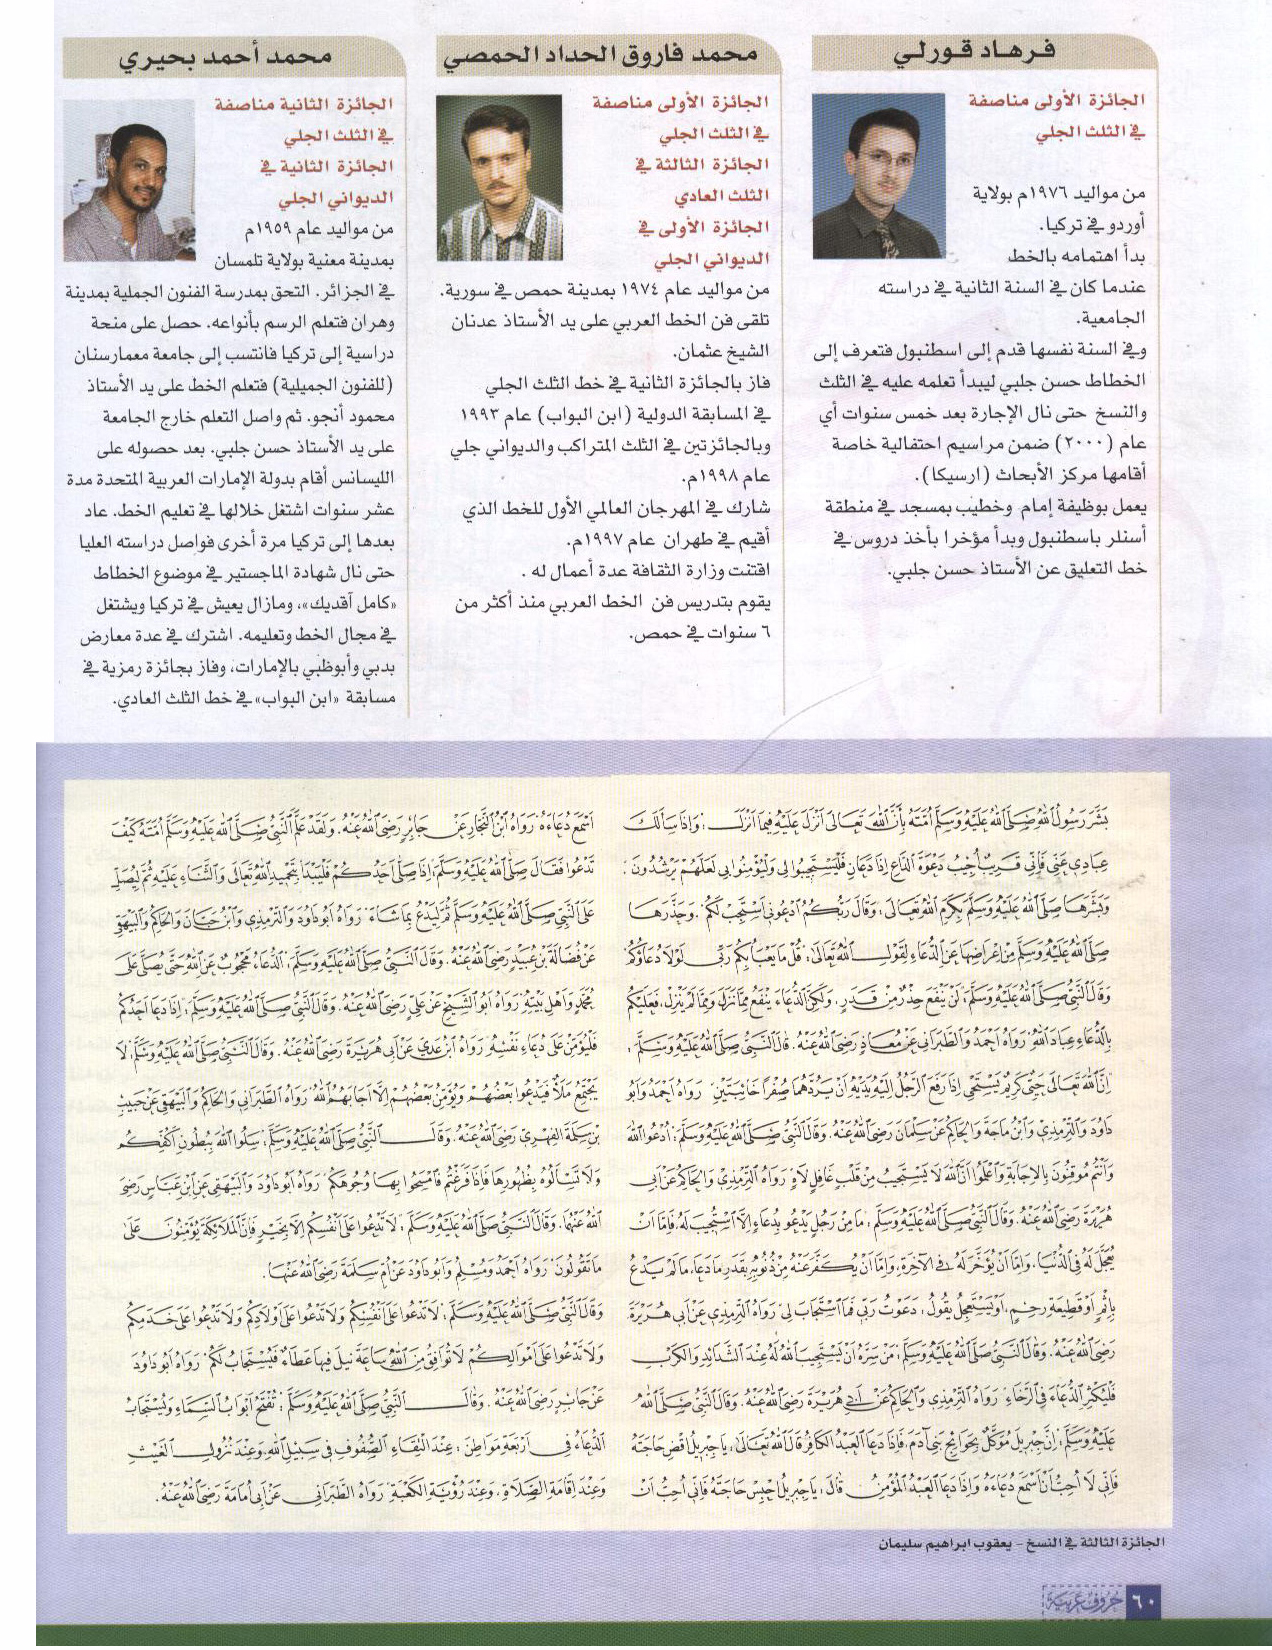 فرهاد قورلي
الجائزة الأولى مناصفة
في الثلث الجلي
من مواليد ١٩٧٦م بولاية
أوردو في تركيا.
بدأ اهتمامه بالخط
عندما كان في السنة الثانية في دراسته
الجامعية.
وفي السنة نفسها قدم إلى اسطنبول فتعرف إلى
الخطاط حسن جلبي ليبدأ تعلمه عليه في الثلث
والنسخ حتى نال الإجارة بعد خمس سنوات أي
عام (٢٠٠٠) ضمن مراسيم احتفالية خاصة
أقامها مركز الأبحاث (ارسيكا).
يعمل بوظيفة إمام وخطيب بمسجد في منطقة
أسنلر باسطنبول وبدأ مؤخرا بأخذ دروس في
خط التعليق عن الأستاذ حسن جلبي.
محمد فاروق الحداد الحمصي
الجائزة الأولى مناصفة
في الثلث الجلي
الجائزة الثالثة في
الثلث العادي
الجائزة الأولى في
الديواني الجلي
من مواليد عام ١٩٧٤ بمدينة حمص في سورية.
تلقى فن الخط العربي على يد الأستاذ عدنان
الشيخ عثمان.
فاز بالجائزة الثانية في خط الثلث الجلي
في المسابقة الدولية (ابن البواب) عام ١٩٩٣
وبالجائزتين في الثلث المتراكب والديواني جلي
عام ١٩٩٨م.
شارك في المهرجان العالمي الأول للخط الذي
أقيم في طهران عام ١٩٩٧م.
اقتنت وزارة الثقافة عدة أعمال له .
يقوم بتدريس فن الخط العربي منذ أكثر من
٦ سنوات في حمص.
محمد أحمد بحيري
الجائزة الثانية مناصفة
في الثلث الجلي
الجائزة الثانية في
الديواني الجلي
من مواليد عام ١٩٥٩م
بمدينة مغنية بولاية تلمسان
في الجزائر. التحق بمدرسة الفنون الجملية بمدينة
وهران فتعلم الرسم بأنواعه. حصل على منحة
دراسية إلى تركيا فانتسب إلى جامعة معمارسنان
(للفنون الجميلية) فتعلم الخط على يد الأستاذ
محمود أنجو. ثم واصل التعلم خارج الجامعة
على يد الأستاذ حسن جلبي. بعد حصوله على
الليسانس أقام بدولة الإمارات العربية المتحدة مدة
عشر سنوات اشتغل خلالها في تعليم الخط. عاد
بعدها إلى تركيا مرة أخرى فواصل دراسته العليا
حتى نال شهادة الماجستير في موضوع الخطاط
«كامل آقديك»، ومازال يعيش في تركيا ويشتغل
في مجال الخط وتعليمه. اشترك في عدة معارض
بدبي وأبوظبي بالإمارات، وفاز بجائزة رمزية في
مسابقة «ابن البواب» في خط الثلث العادي.
بشر رسول الله صلى الله عليه وسلم أمته بأن الله تعالى أنزل عليه فيما أنزل : وإذا سألك
عبادي عني فإني قريب أجيب دعوة الداع إذا دعان فليستجيبوا لي وليؤمنوا بي لعلهم يرشدون .
وبشرها صلى الله عليه وسلم بكرم الله تعالى : وقال ربكم ادعوني أستجب لكم . وحذرها
صلى الله عليه وسلم من إعراضها عن الدعاء لقول الله تعالى : قل ما يعبأ بكم ربي لولا دعاؤكم
وقال النبي صلى الله عليه وسلم : لن ينفع حذر من قدر ، ولكن الدعاء ينفع مما نزل ومما لم ينزل ، فعليكم
بالدعاء عباد الله رواه أحمد والطبراني عن معاذ رضي الله عنه . قال النبي صلى الله عليه وسلم :
إن الله تعالى حيي كريم يستحي إذا رفع الرجل إليه يديه أن يردهما صفرا خائبتين رواه أحمد وأبو
داود والترمذي وابن ماجة والحاكم عن سلمان رضي الله عنه . وقال النبي صلى الله عليه وسلم : ادعوا الله
وأنتم موقنون بالإجابة واعلموا أن الله لا يستجيب من قلب غافل لاه رواه الترمذي والحاكم عن أبي
هريرة رضي الله عنه . وقال النبي صلى الله عليه وسلم : ما من رجل يدعو بدعاء إلا استجيب له . فإما أن
يعجل له في الدنيا ، وإما أن يؤخر له في الآخرة ، وإما أن يكفر عنه من ذنوبه بقدر ما دعا ، ما لم يدع
بإثم أو قطيعة رحم ، أو يستعجل يقول : دعوت ربي فما استجاب لي رواه الترمذي عن أبي هريرة
رضي الله عنه . وقال النبي صلى الله عليه وسلم : من سره أن يستجيب الله له عند الشدائد والكرب
فليكثر الدعاء في الرخاء رواه الترمذي والحاكم عن أبي هريرة رضي الله عنه . وقال النبي صلى الله
عليه وسلم : إن جبريل موكل بحوائج بني آدم ، فإذا دعا العبد الكافر قال الله تعالى : يا جبريل اقض حاجته
فإني لا أحب أن أسمع دعاءه وإذا دعا العبد المؤمن قال : يا جبريل احبس حاجته فإني أحب أن
أسمع دعاءه رواه ابن النجار عن جابر رضي الله عنه . ولقد علم النبي صلى الله عليه وسلم أمته كيف
تدعوا فقال صلى الله عليه وسلم : إذا صلى أحدكم فليبدأ بتحميد الله تعالى والثناء عليه ثم ليصل
على النبي صلى الله عليه وسلم ثم ليدع بما شاء رواه أبو داود والترمذي وابن حبان والحاكم والبيهقي
عن فضالة بن عبيد رضي الله عنه . وقال النبي صلى الله عليه وسلم : الدعاء محجوب عن الله حتى يصلى على
محمد وأهل بيته رواه أبو الشيخ عن علي رضي الله عنه . وقال النبي صلى الله عليه وسلم : إذا دعا أحدكم
فليؤمن على دعاء نفسه رواه ابن عدي عن أبي هريرة رضي الله عنه . وقال النبي صلى الله عليه وسلم : لا
يجتمع ملأ فيدعوا بعضهم ويؤمن بعضهم إلا أجابهم الله رواه الطبراني والحاكم والبيهقي عن حبيب
بن سلمة الفهري رضي الله عنه . وقال النبي صلى الله عليه وسلم : سلوا الله ببطون أكفكم
ولا تسألوه بظهورها فإذا فرغتم فامسحوا بها وجوهكم رواه أبو داود والبيهقي عن ابن عباس رضي
الله عنهما . وقال النبي صلى الله عليه وسلم : لا تدعوا على أنفسكم إلا بخير فإن الملائكة يؤمنون على
ما تقولون رواه أحمد ومسلم وأبو داود عن أم سلمة رضي الله عنها .
وقال النبي صلى الله عليه وسلم : لا تدعوا على أنفسكم ولا تدعوا على أولادكم ولا تدعوا على خدمكم
ولا تدعوا على أموالكم لا توافق من الله ساعة نيل فيها عطاء فيستجاب لكم رواه أبو داود
عن جابر رضي الله عنه . وقال النبي صلى الله عليه وسلم : تفتح أبواب السماء ويستجاب
الدعاء في أربعة مواطن : عند التقاء الصفوف في سبيل الله وعند نزول الغيث
وعند إقامة الصلاة . وعند رؤية الكعبة رواه الطبراني عن أبي أمامة رضي الله عنه .
الجائزة الثالثة في النسخ - يعقوب ابراهيم سليمان
حروف عربية
٦٠